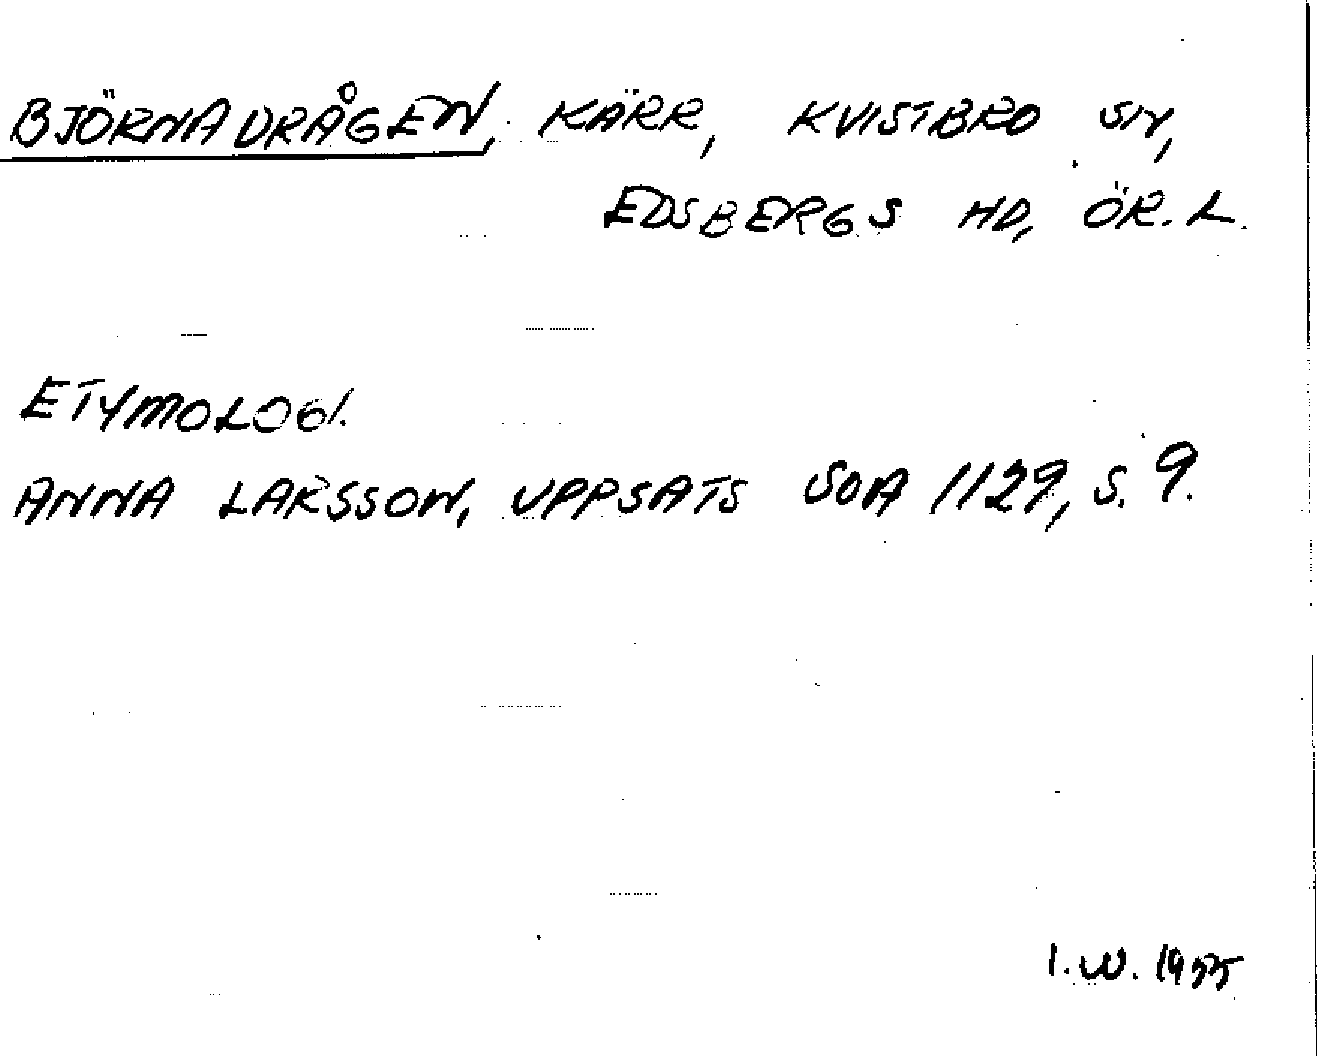 BJÖRNADRÅGEN, KÄRR, KVISTBRO SN,
EDSBERGS HD, ÖR. L.
ETYMOLOGI.
ANNA LARSSON, UPPSATS SOA 1129, S. 9.
I. W. 1955